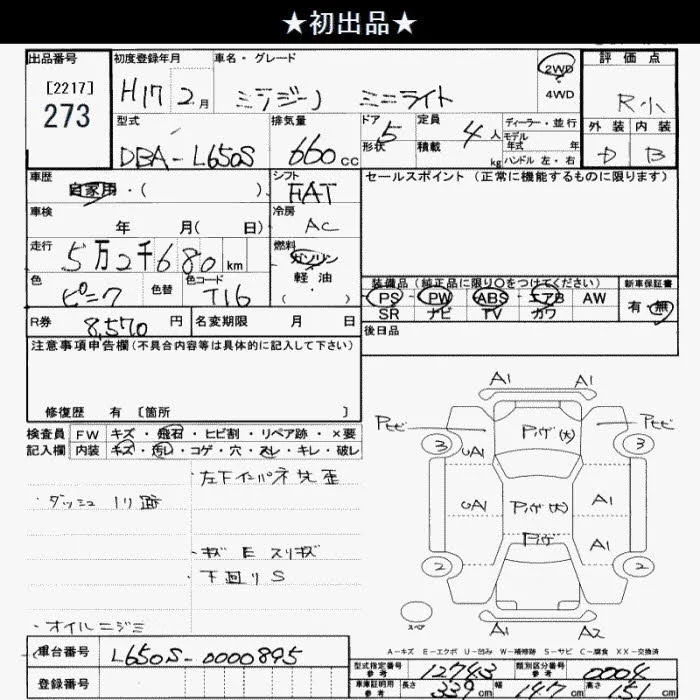 ★初出品★
出品番号
[2217]
273
初度登録年月
H17 2月
車名・グレード
ミラジーノ ミニライト
2WD
4WD
評価点
R小
外装 内装
D B
型式
DBA-L650S
排気量
660 cc
ドア 5
形状
定員 4人
積載 kg
ディーラー・並行
モデル
年式 年
ハンドル 左・右
車歴
自家用・( )
シフト
FAT
セールスポイント (正常に機能するものに限ります)
車検
年 月( 日)
冷房
AC
走行
5万2千680km
燃料
ガソリン
軽油
( )
色
ピンク
色替
色コード
T16
装備品(純正品に限り○をつけてください)
PS PW ABS エアB AW
SR ナビ TV カワ
新車保証書
有・無
R券 8,570円
名変期限 月 日
後日品
注意事項申告欄(不具合内容等は具体的に記入して下さい)
修復歴 有 〔箇所 〕
検査員
記入欄
FW キズ・飛石・ヒビ割・リペア跡・×要
内装 キズ・汚レ・コゲ・穴・スレ・キレ・破レ
左下インパネ 歪
・ダッシュ ノリ跡
・キズ E スリキズ
・下回り S
・オイルニジミ
A1 A1
Pヒビ Pハゲ(大) Pヒビ
3 3
UA1
UA1 Pハゲ(大) A1
Pハゲ A1
2 2
スペア
A1 A2
A-キズ E-エクボ U-凹み W-補修跡 S-サビ C-腐食 XX-交換済
車台番号
L650S-0000895
登録番号
型式指定番号
参考
12743
類別区分番号
参考
0004
車庫証明用
参考
長さ 339cm 幅 147cm 高さ 151cm